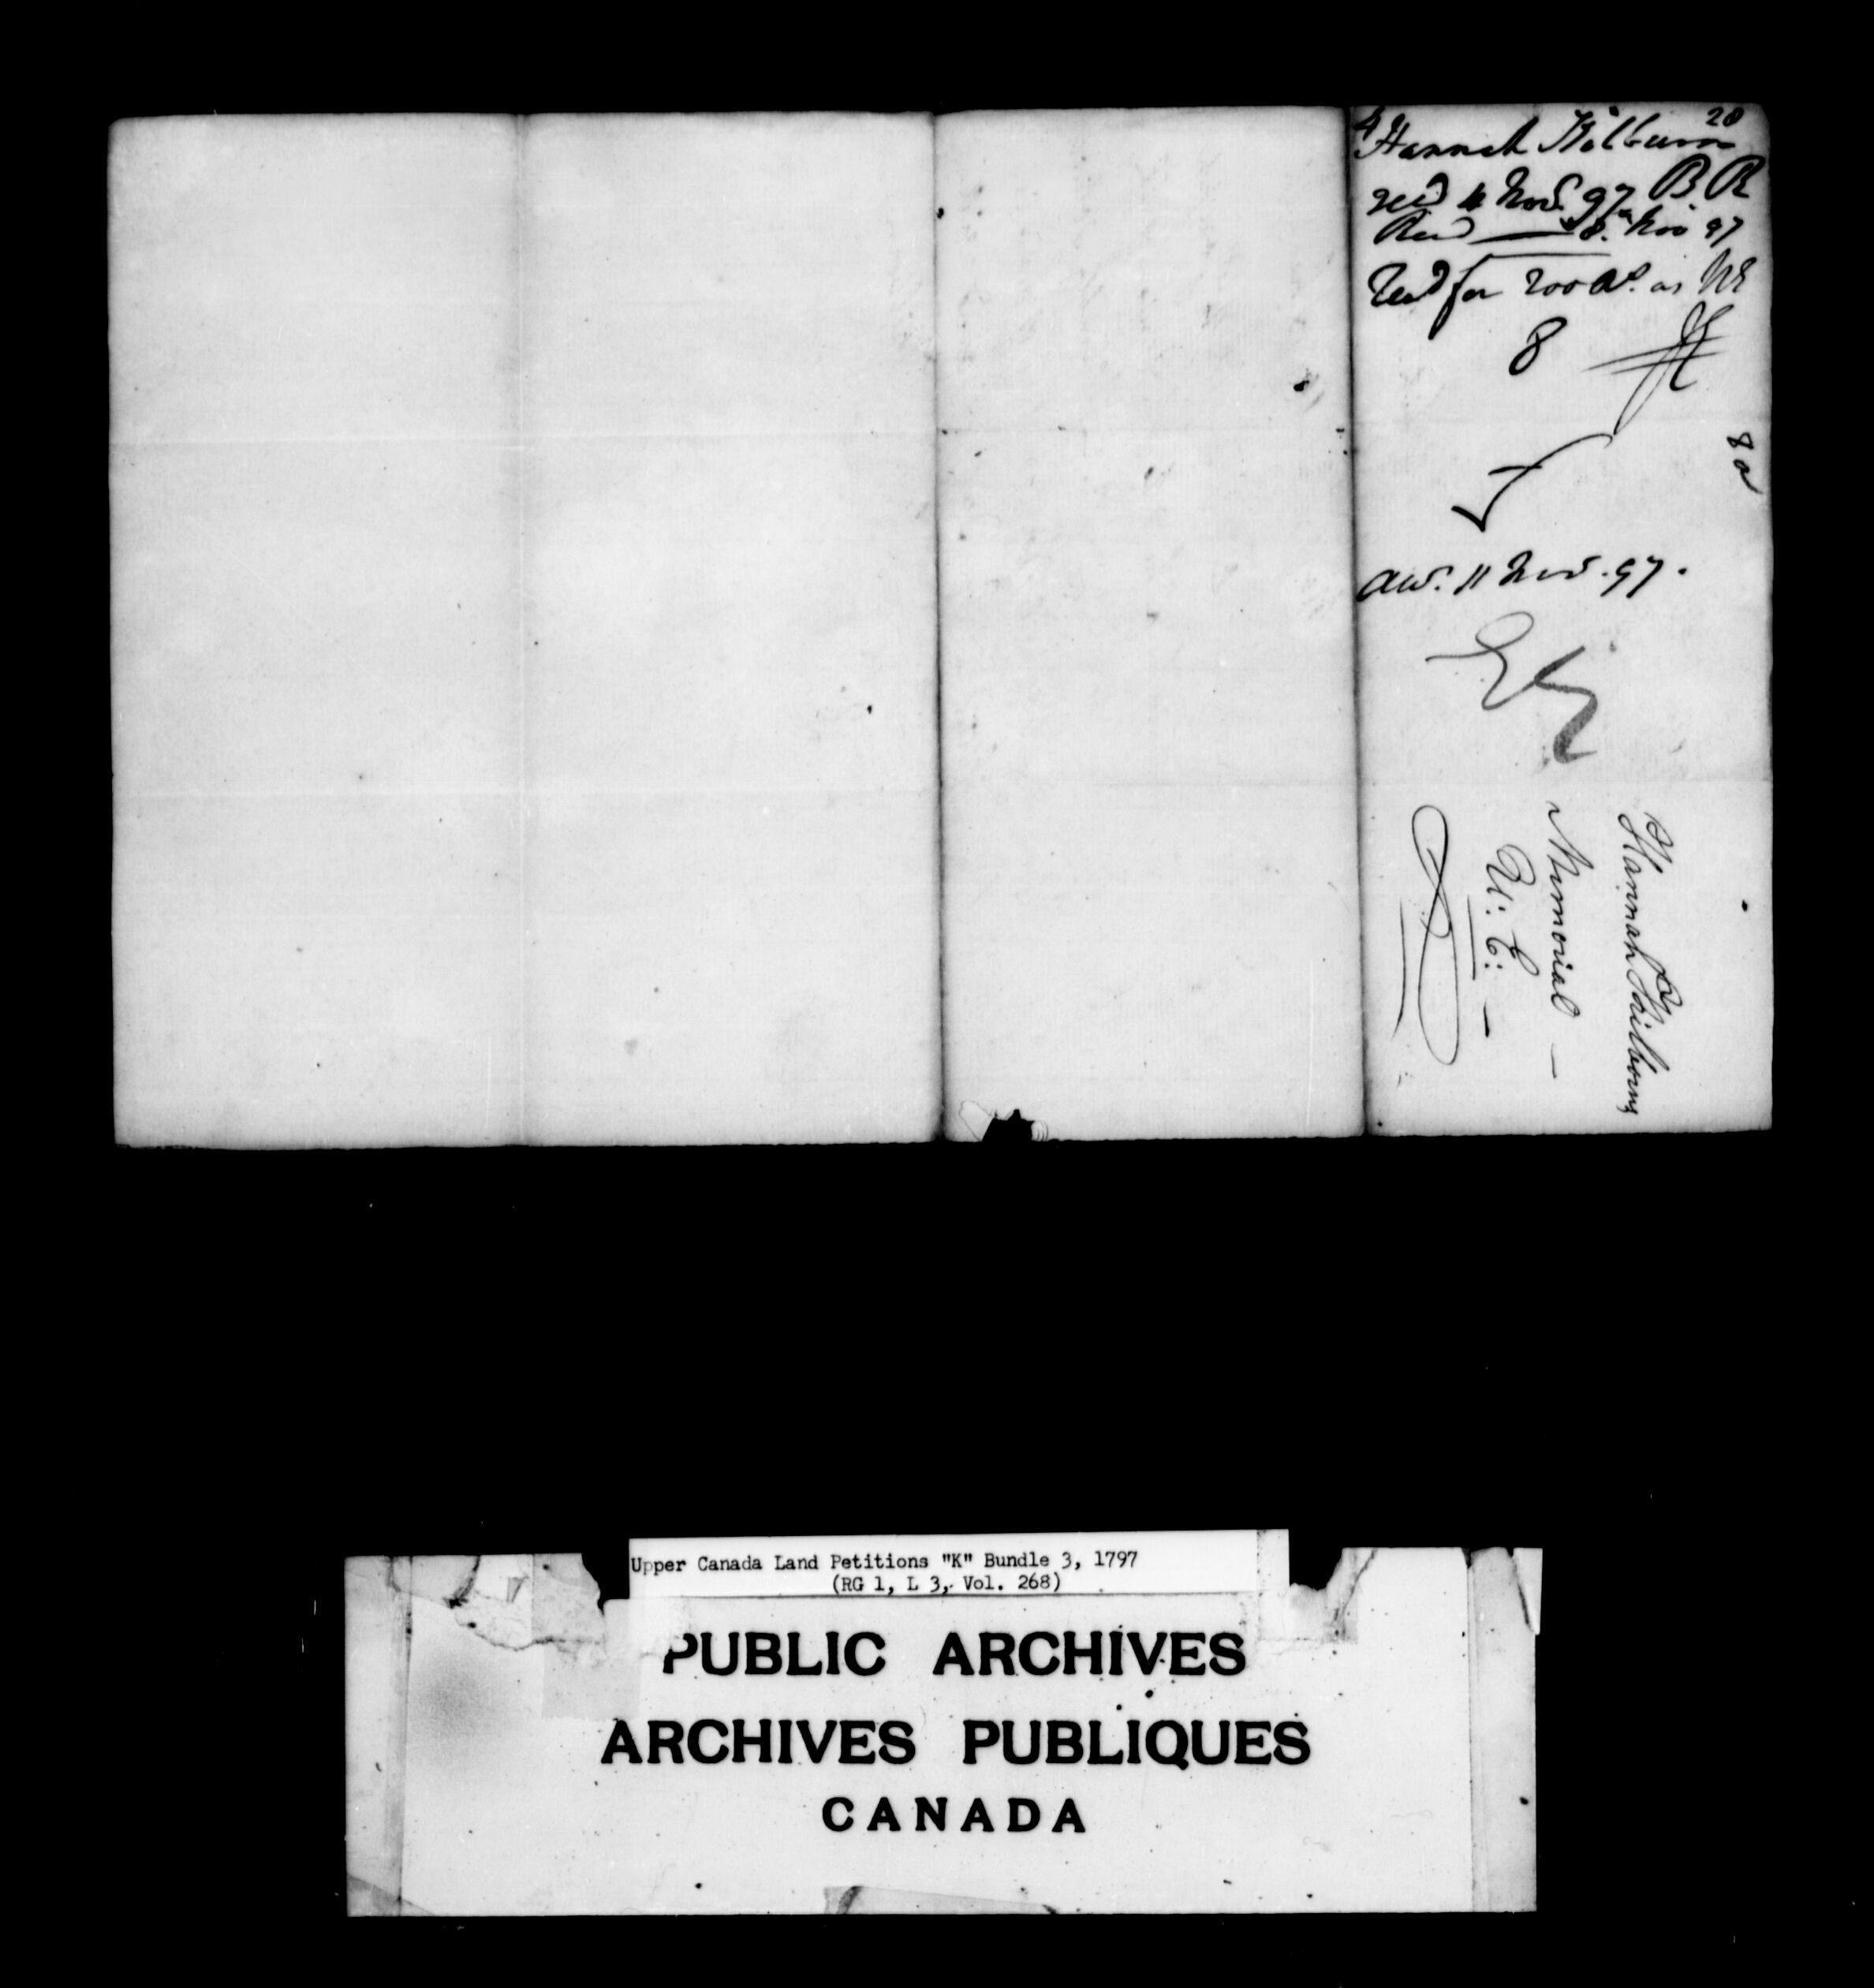 20
Hannah Kilburn
recd 4 Nov. 97 B. R
Read 8th Nov 97
Recd for 200 As. as UE
8
8 a
11 Nov. 97.
Hannah Kilbourn
Memorial —
U: C: —
Upper Canada Land Petitions "K" Bundle 3, 1797
(RG 1, L 3, Vol. 268)
PUBLIC ARCHIVES
ARCHIVES PUBLIQUES
CANADA